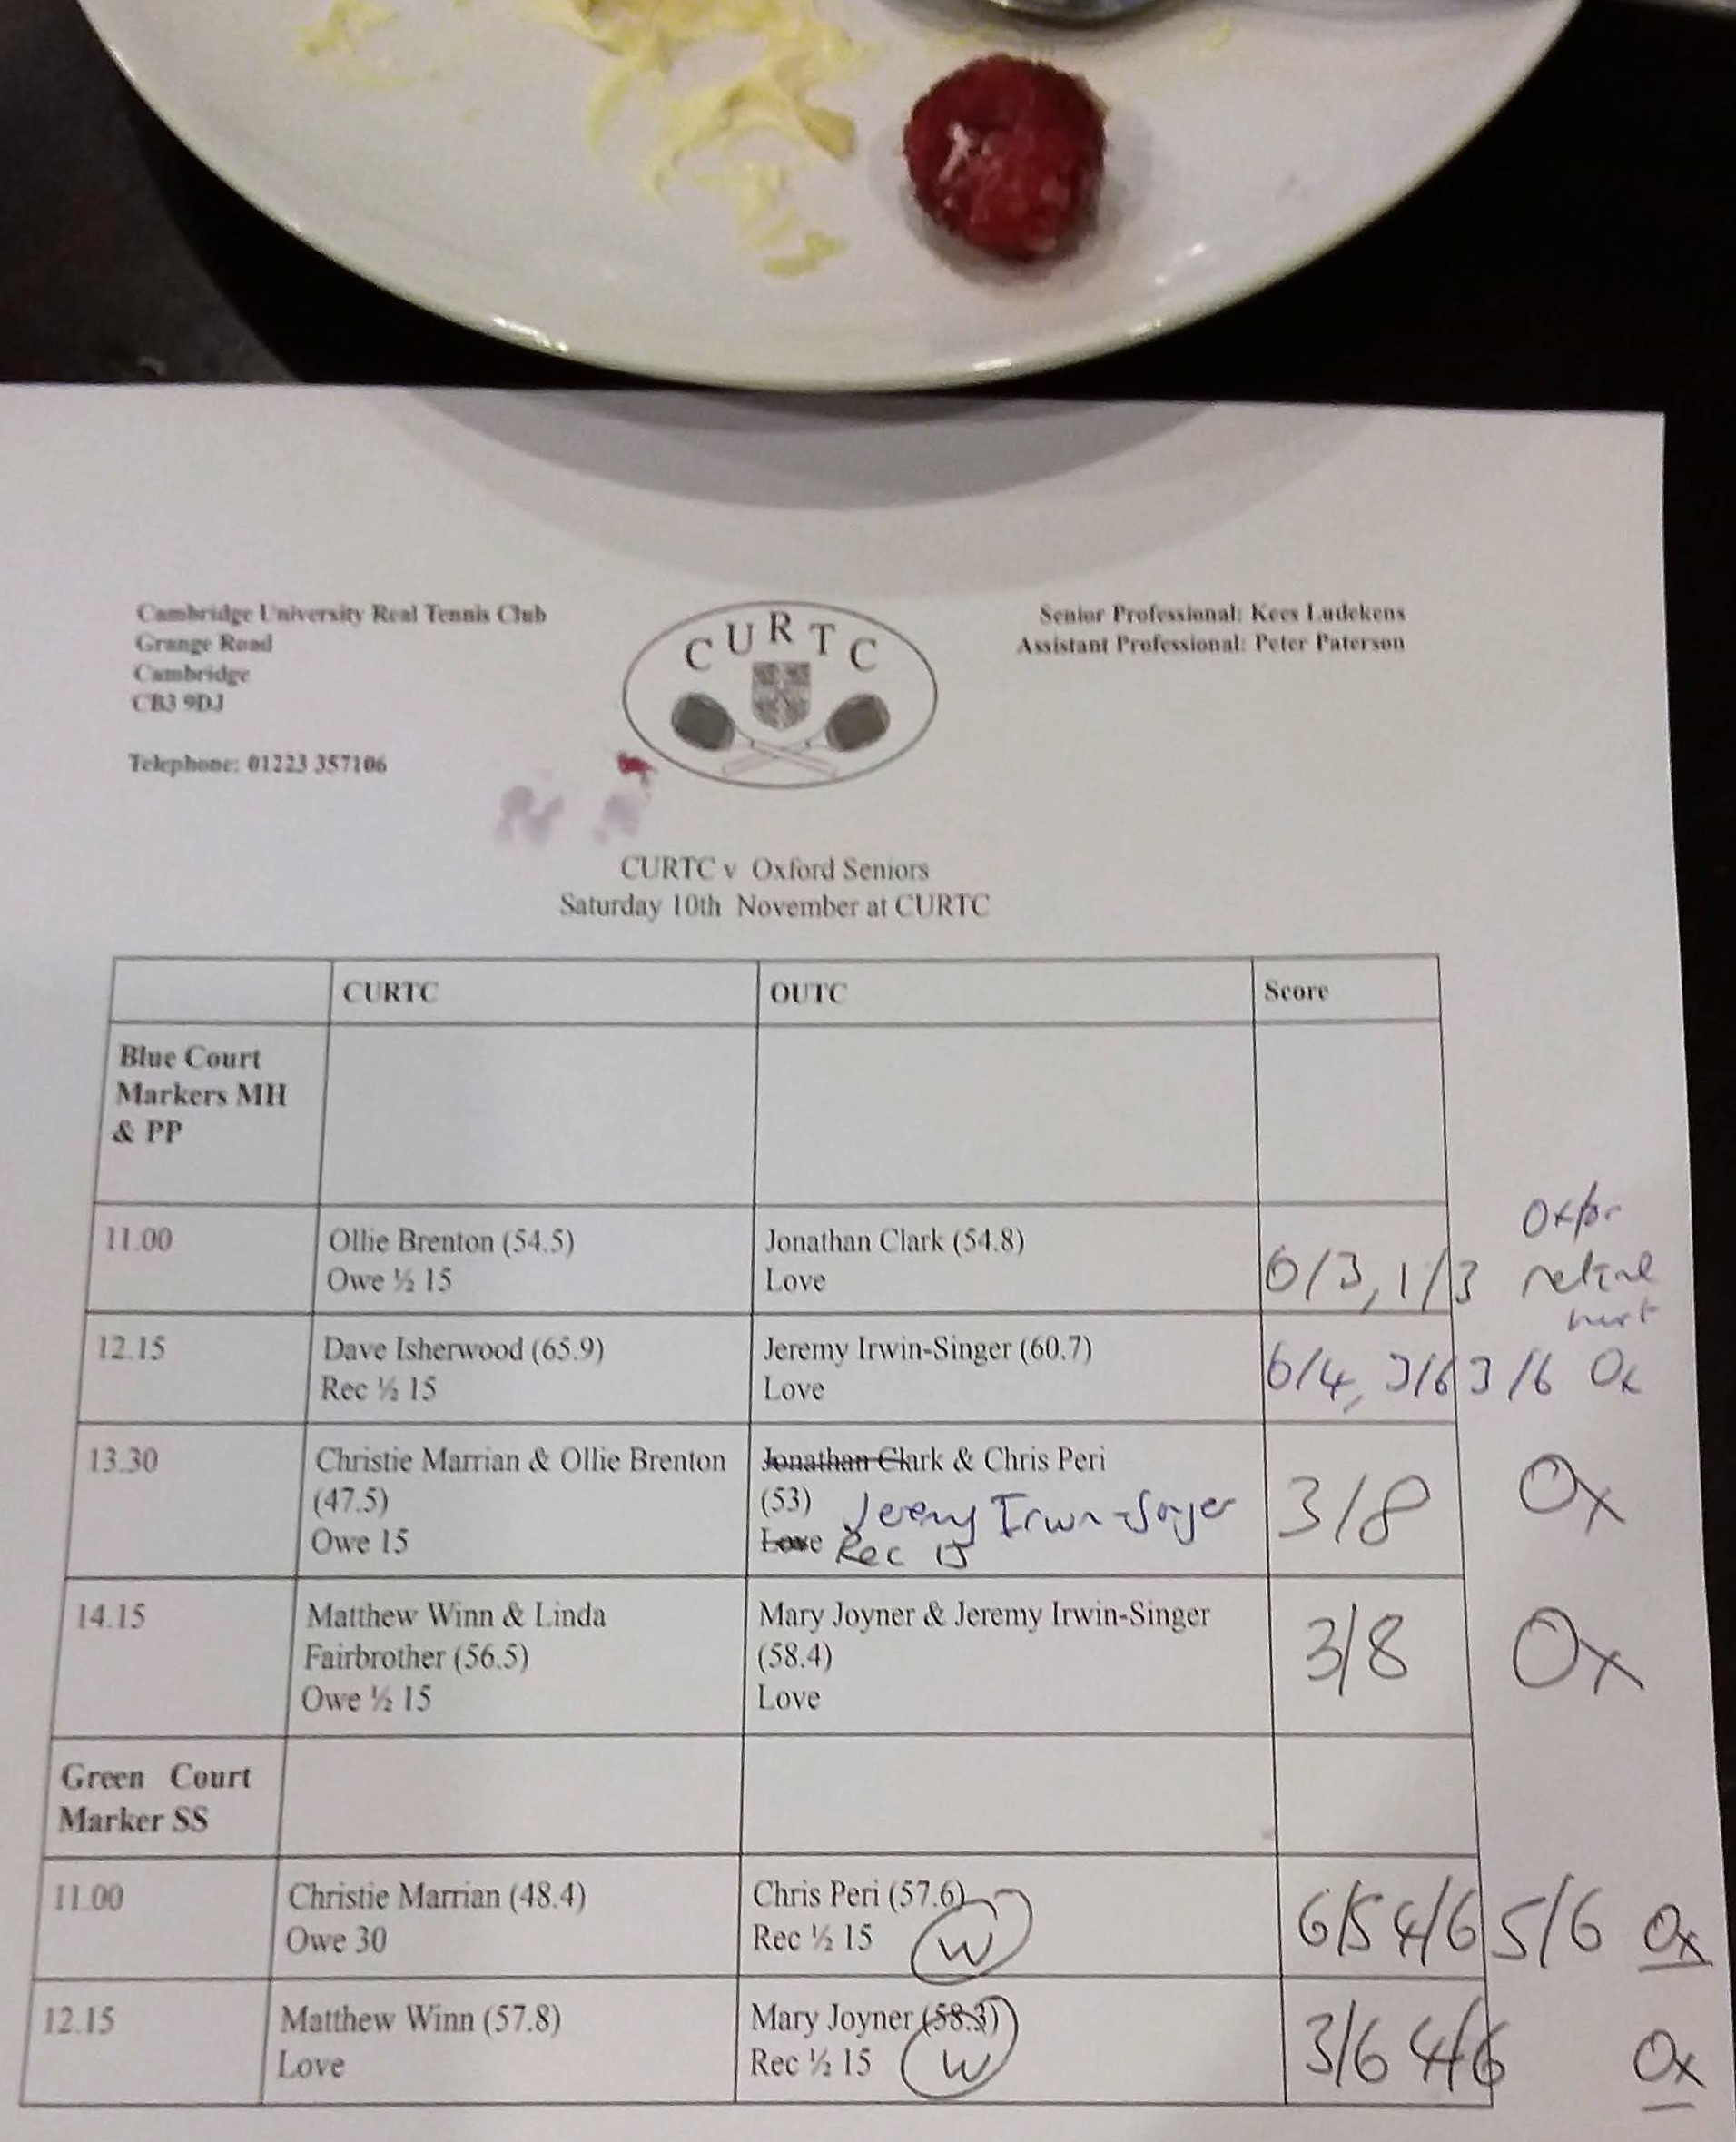 Cambridge University Real Tennis Club
Grange Road
Cambridge
CB3 9DJ
Telephone: 01223 357106
CURTC
Senior Professional: Kees Ludekens
Assistant Professional: Peter Paterson
CURTC v Oxford Seniors
Saturday 10th November at CURTC
CURTC OUTC Score
Blue Court
Markers MH
& PP
11.00 Ollie Brenton (54.5) Jonathan Clark (54.8)
Owe ½ 15 Love
6/3, 1/3
12.15 Dave Isherwood (65.9) Jeremy Irwin-Singer (60.7)
Rec ½ 15 Love
6/4, 3/6 3/6 Ox
13.30 Christie Marrian & Ollie Brenton Jonathan Clark & Chris Peri
(47.5) (53) Jeremy Irwin-Singer
Owe 15 Love Rec 15
3/8 Ox
14.15 Matthew Winn & Linda Mary Joyner & Jeremy Irwin-Singer
Fairbrother (56.5) (58.4)
Owe ½ 15 Love
3/8 Ox
Green Court
Marker SS
11.00 Christie Marrian (48.4) Chris Peri (57.6)
Owe 30 Rec ½ 15 W
6/5 4/6 5/6 Ox
12.15 Matthew Winn (57.8) Mary Joyner (58.3)
Love Rec ½ 15 W
3/6 4/6 Ox